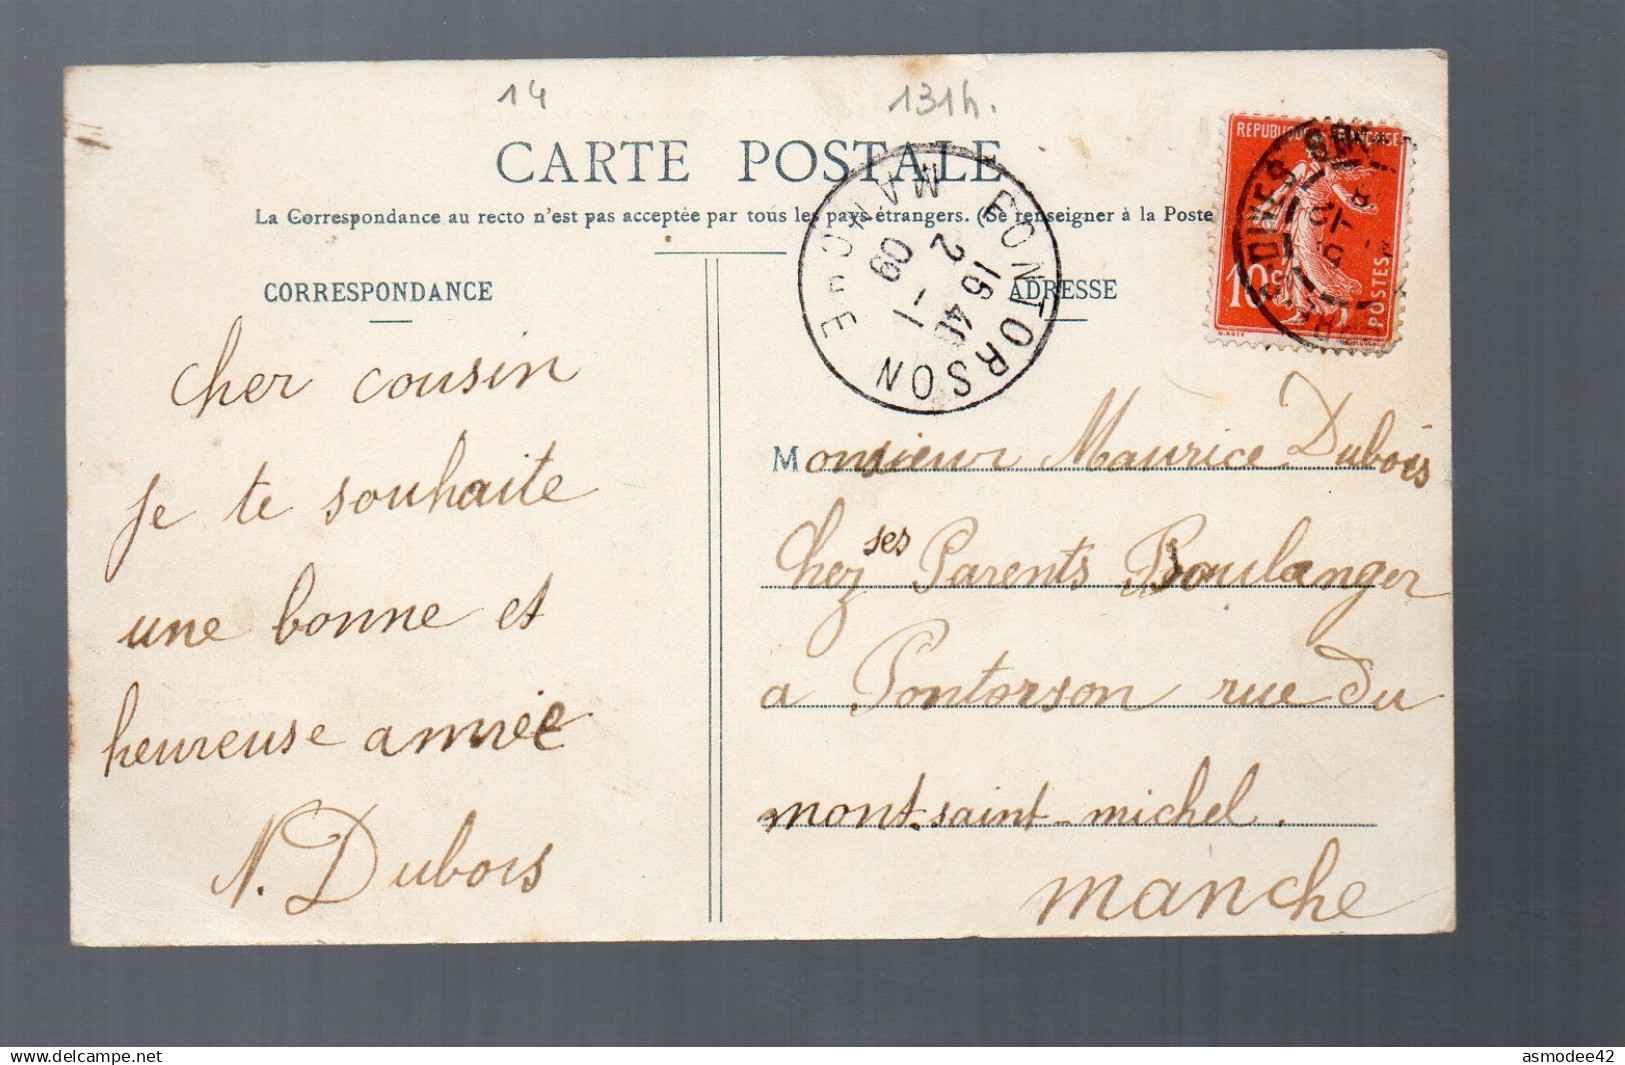 14
131h.
CARTE POSTALE
La Correspondance au recto n'est pas acceptée par tous les pays étrangers. (Se renseigner à la Poste
CORRESPONDANCE
cher cousin
je te souhaite
une bonne et
heureuse année
N. Dubois
PONTORSON
MANCHE
15 40
2 - 1
09
ADRESSE
REPUBLIQUE FRANÇAISE
10 c
POSTES
Monsieur Maurice Dubois
chez ses Parents Boulanger
a Pontorson rue du
mont-saint-michel.
manche
www.delcampe.net
asmodee42